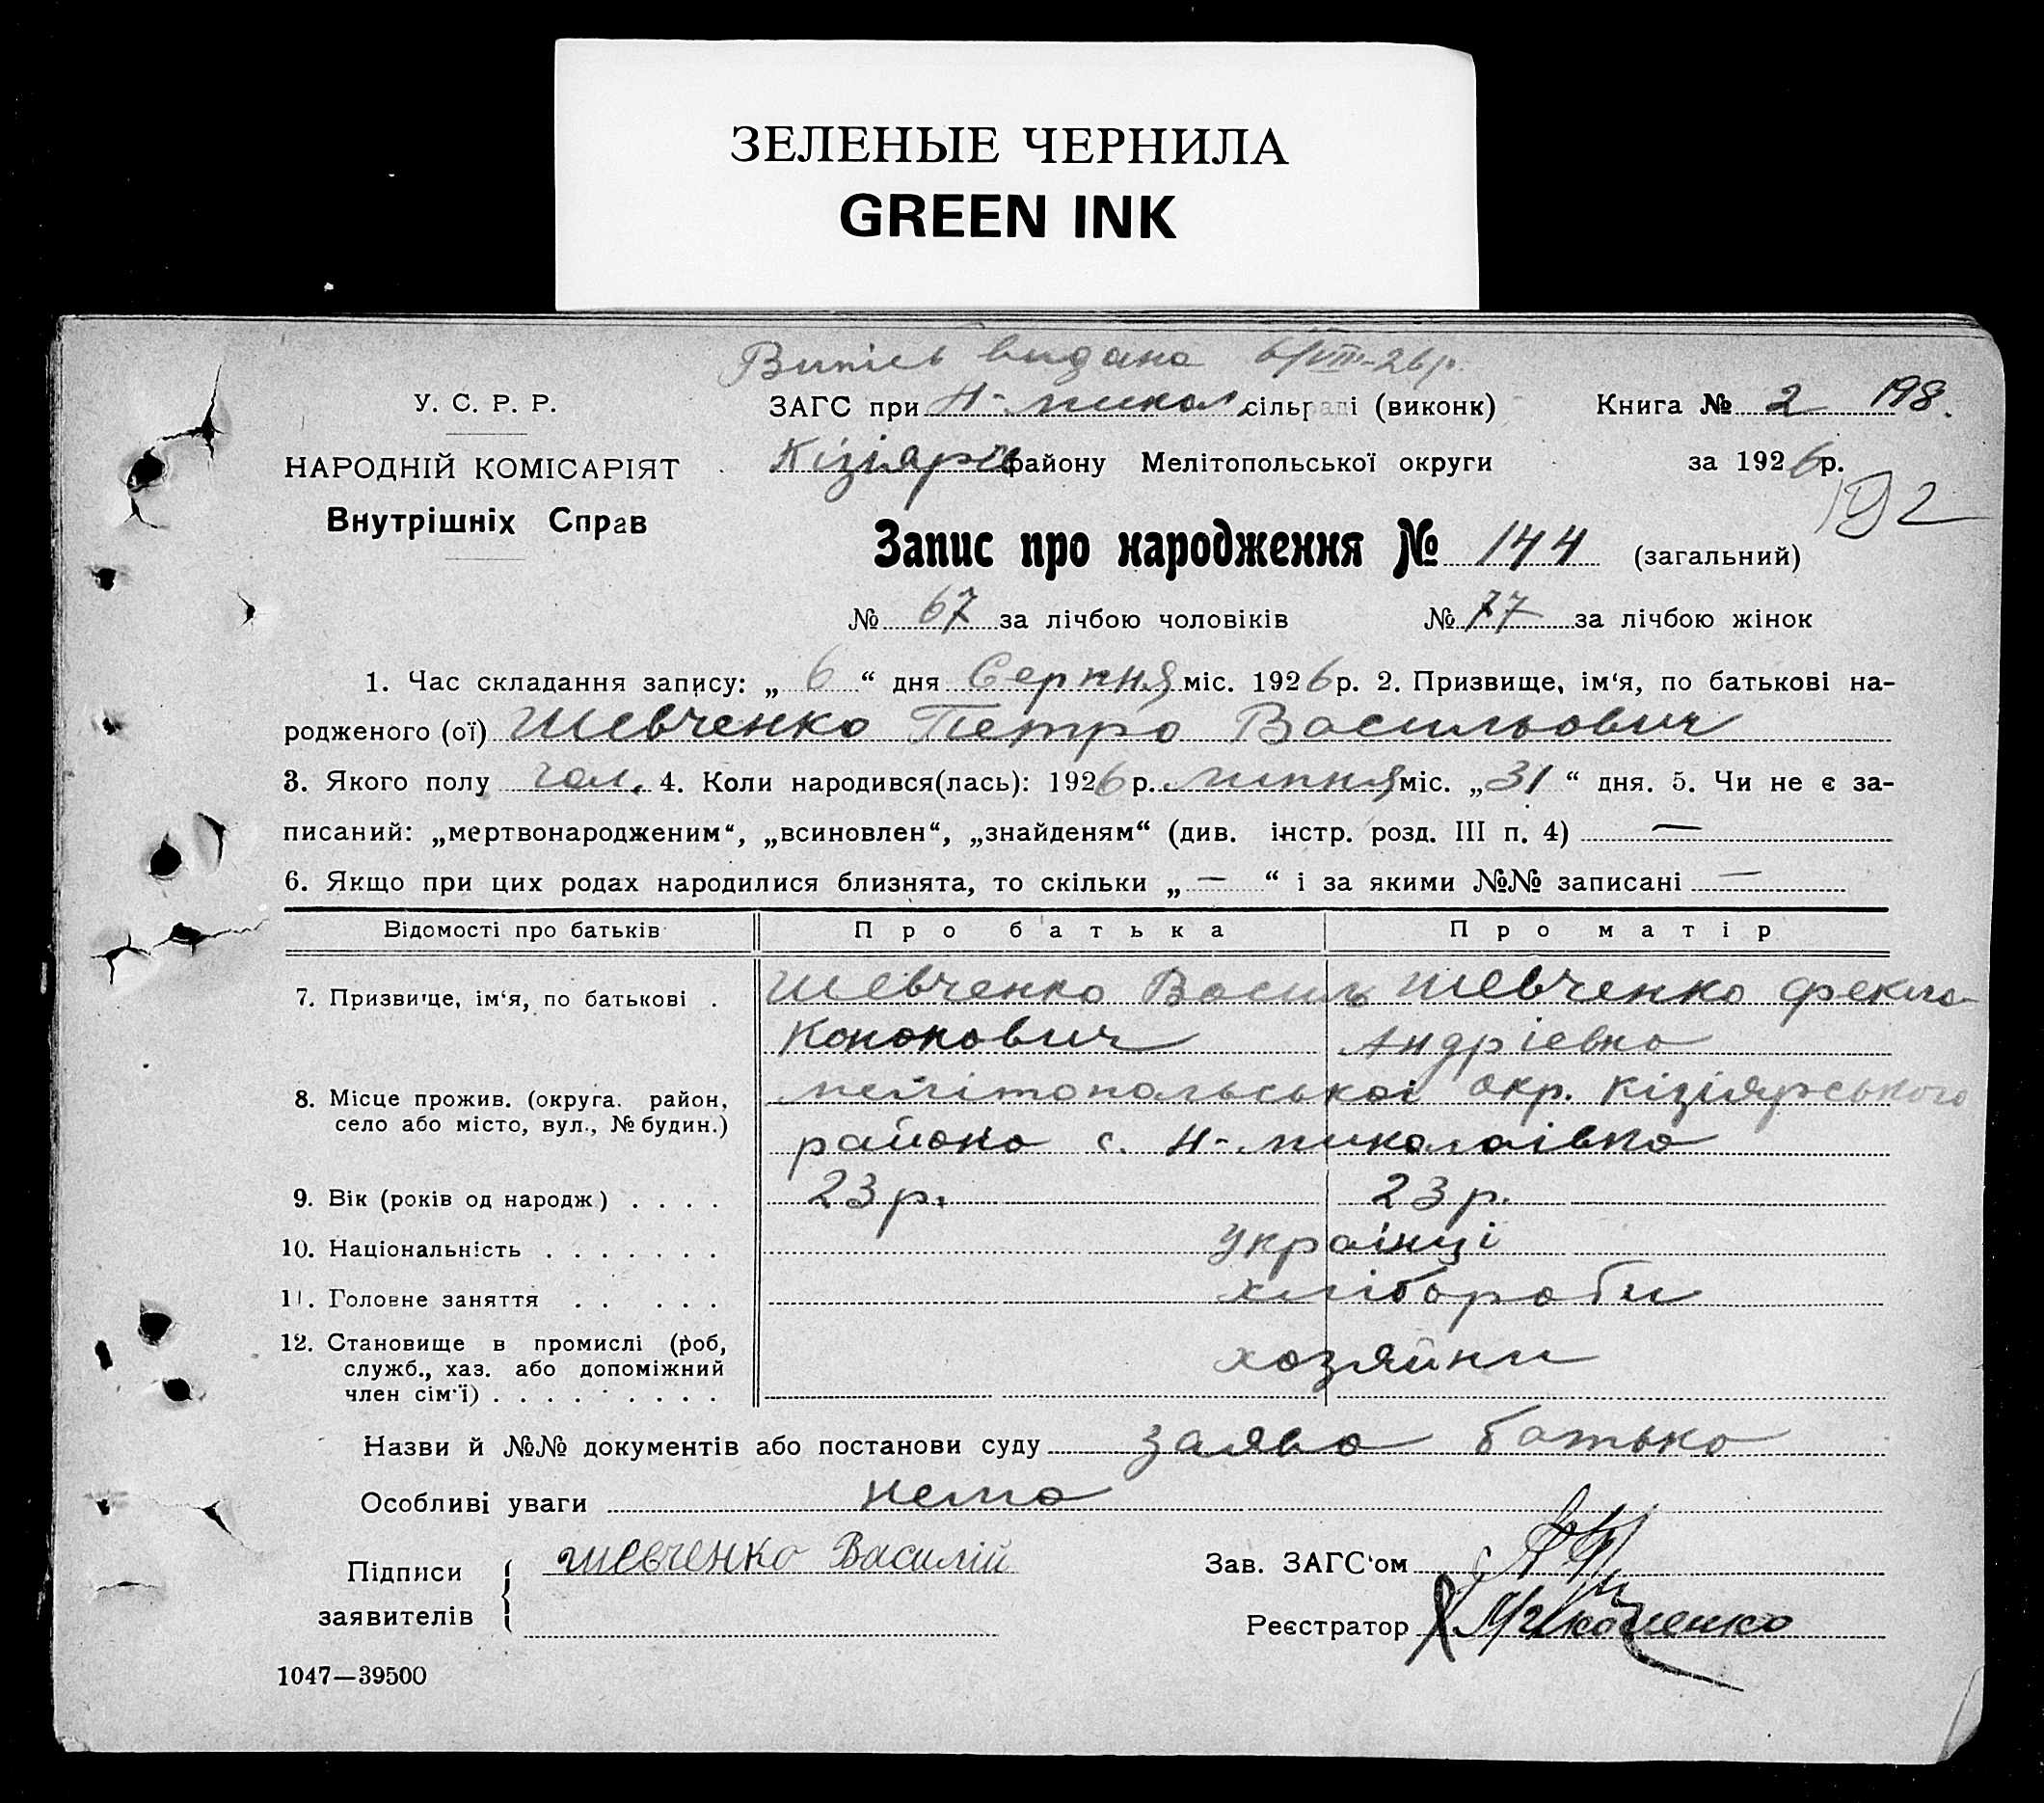 ЗЕЛЕНЫЕ ЧЕРНИЛА
GREEN INK
Випись видана 6/VIII-26 р.
У. С. Р. Р.
НАРОДНІЙ КОМІСАРІЯТ
Внутрішніх Справ
ЗАГС при Н-микол сільраді (виконк) Книга № 2 198.
Кізіярс району Мелітопольської округи за 1926 р.
192
Запис про народження № 144 (загальний)
№ 67 за лічбою чоловіків № 77 за лічбою жінок
1. Час складання запису: „ 6 “ дня Серпня міс. 1926 р. 2. Призвище, ім‘я, по батькові на-
родженого (ої) Шевченко Петро Васильович
3. Якого полу чол. 4. Коли народився(лась): 1926 р. липня міс. „ 31 “ дня. 5. Чи не є за-
писаний: „мертвонародженим“, „всиновлен“, „знайденям“ (див. інстр. розд. III п. 4) —
6. Якщо при цих родах народилися близнята, то скільки „ — “ і за якими №№ записані —
Відомості про батьків Про батька Про матір
7. Призвище, ім‘я, по батькові . Шевченко Василь Шевченко Фекла
Кононович Андріевна
8. Місце прожив. (округа. район, село або місто, вул., № будин.) мелітопольськоі окр. Кізіярського
района с. Н-миколаівка
9. Вік (років од народж) . . . . 23 р. 23 р.
10. Національність . . . . . . . Украінці
11. Головне заняття . . . . . хлібороби
12. Становище в промислі (роб, служб., хаз. або допоміжний член сім‘ї) . . . . . . . . . хозяйни
Назви й №№ документів або постанови суду заява батька
Особливі уваги нема
Підписи заявителів { Шевченко Василій
Зав. ЗАГС‘ом
Реєстратор
1047—39500